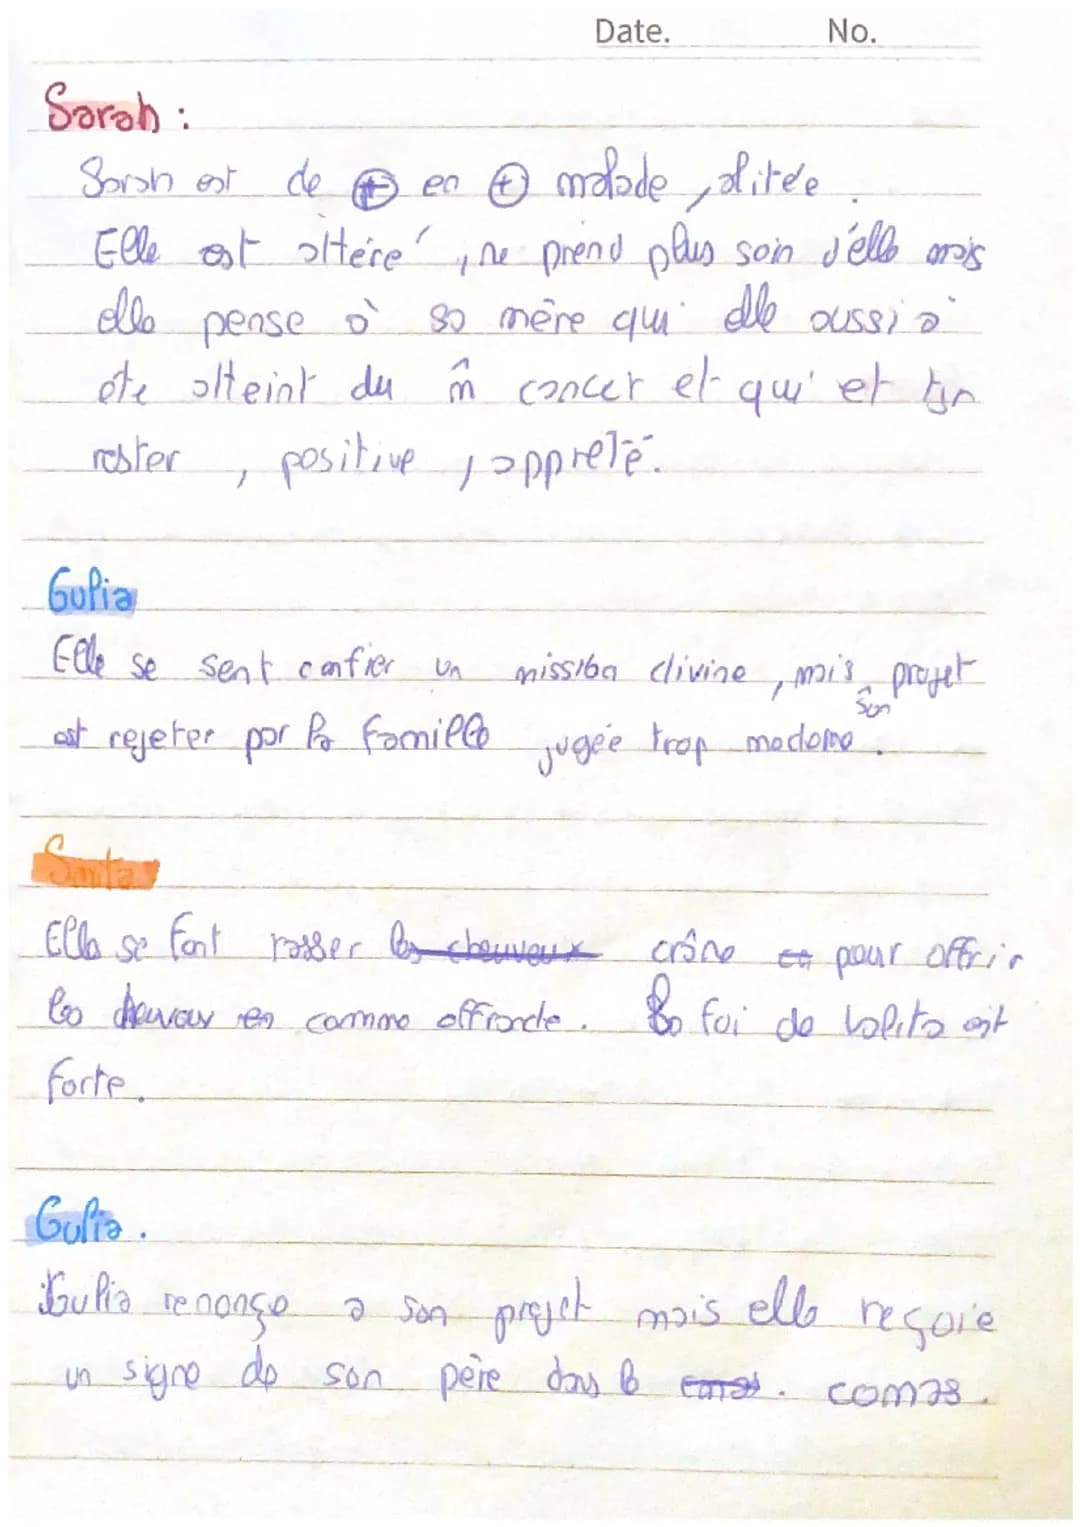 Date. No.
Sarah :
Sarah est de ⊕ en ⊕ malade, alitée.
Elle est altéré, ne prend plus soin d'elle mais
elle pense à sa mère qui elle aussi a
ete atteint du m̂ cancer et qui et
rester, positive, appreté.
Gulia
Elle se sent confier un mission divine, mais son projet
est rejeter par la famille jugée trop moderne.
Smita
Elle se font rasser les cheuveux crâne et pour offrir
les cheveux en comme offrande. La foi de Lalita est
forte.
Gulia.
Gulia renonçe a son projet mais elle reçoie
un signe de son père dans le comas. comas.